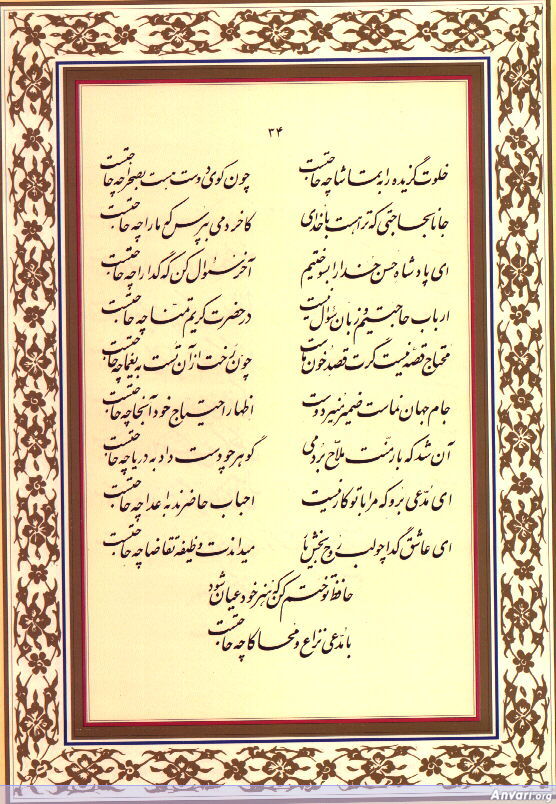 ۳۴
خلوت گزیده را به تماشا چه حاجتست چون کوی دوست هست بصحرا چه حاجتست
جانا بحاجتی که ترا هست با خدای کاخر دمی بپرس که ما را چه حاجتست
ای پادشاه حسن خدا را بسوختیم آخر سؤال کن که گدا را چه حاجتست
ارباب حاجتیم و زبان سؤال نیست در حضرت کریم تمنا چه حاجتست
محتاج قصه نیست گرت قصد خون ماست چون رخت از آن تست به یغما چه حاجتست
جام جهان نماست ضمیر منیر دوست اظهار احتیاج خود آنجا چه حاجتست
آن شد که بار منت ملاح بردمی گوهر چو دست داد به دریا چه حاجتست
ای مدعی برو که مرا با تو کار نیست احباب حاضرند به اعدا چه حاجتست
ای عاشق گدا چو لب روح بخش یار میداندت وظیفه تقاضا چه حاجتست
حافظ تو ختم کن که هنر خود عیان شود
با مدعی نزاع و محاکا چه حاجتست
Anvari.org